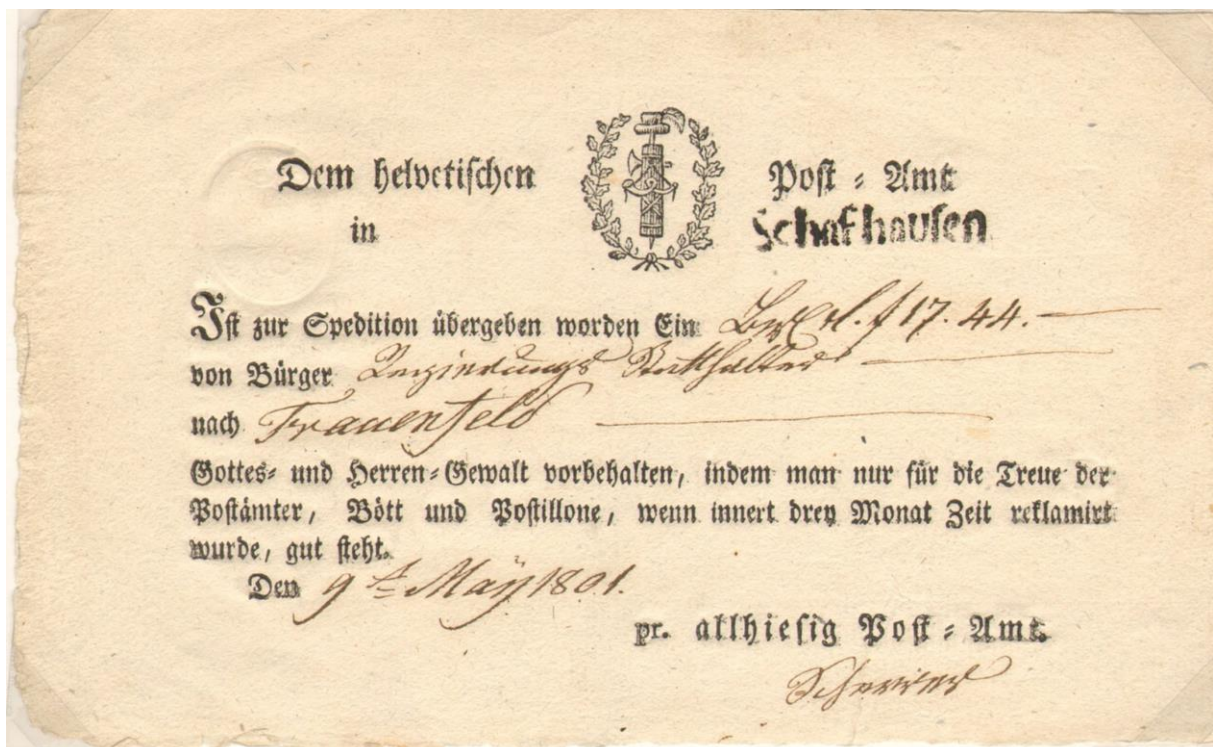 Dem helvetischen Post-Amt
in Schafhausen
Ist zur Spedition übergeben worden Ein f 17. 44.
von Bürger Regierungs Statthalter
nach Frauenfeld
Gottes- und Herren-Gewalt vorbehalten, indem man nur für die Treue der
Postämter, Bött und Postillone, wenn innert drey Monat Zeit reklamirt
wurde, gut steht.
Den 9t May 1801.
pr. allhiesig Post-Amt.